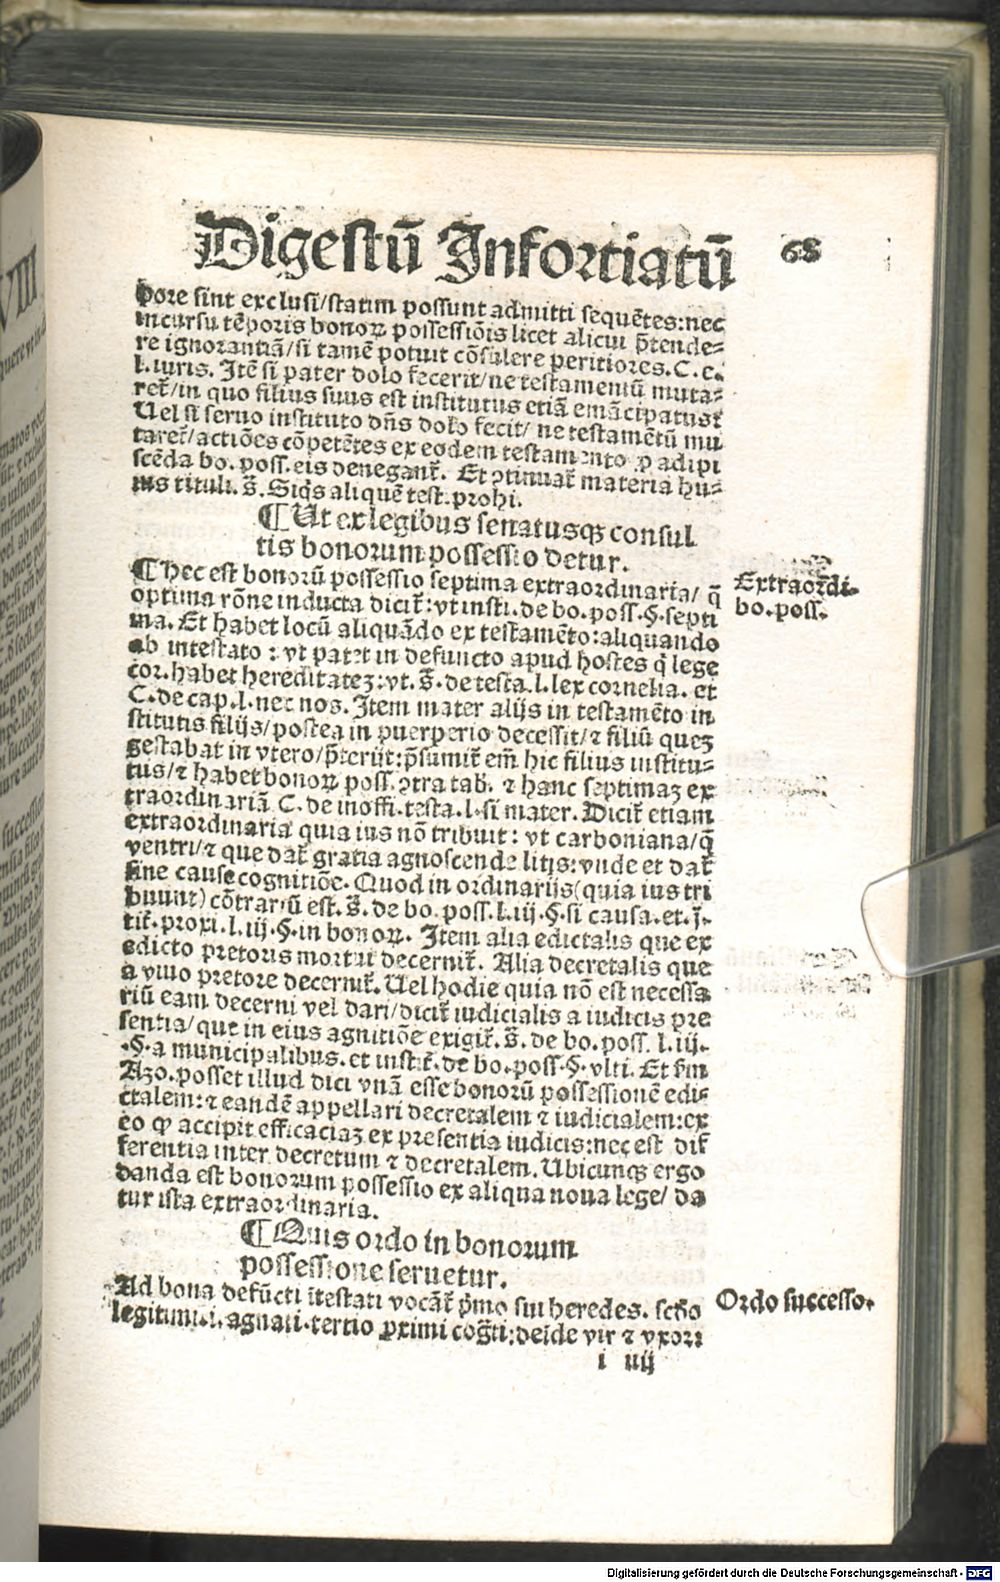 Digestū Infortiatū 68
pore sint exclusi/statim possunt admitti sequētes:nec
in cursu tēporis bonoꝝ possessiōis licet alicui p̄tende-
re ignorantiā/si tamē potuit cōsulere peritiores. C. e.
l. iuris. Itē si pater dolo fecerit/ne testamentū muta-
ret᷑/in quo filius suus est institutus etiā emācipatus:
Uel si seruo instituto dn̄s dolo fecit/ ne testamētū mu
taret᷑/actiōes cōpetētes ex eodem testamento ꝓ adipi
scēda bo. poss. eis denegant᷑. Et ꝯtinuat᷑ materia hu-
ius tituli. s̄. Siqs aliquē test. prohi.
¶ Ut ex legibus senatusqꝫ consul
tis bonorum possessio detur.
¶ Hec est bonorū possessio septima extraordinaria/ q̄
optima rōne inducta dicit᷑: vt insti. de bo. poss. §. septi
ma. Et habet locū aliquādo ex testamēto: aliquando
ab intestato: vt patet in defuncto apud hostes q̄ lege
cor. habet hereditateꝫ: vt. s̄. de testa. l. lex cornelia. et
C. de cap. l. nec nos. Item mater alijs in testamēto in
stitutis filijs/ postea in puerperio decessit/ ⁊ filiū queꝫ
gestabat in vtero/p̄terijt: p̄sumit᷑ em̄ hic filius institu-
tus/ ⁊ habet bonoꝝ poss. ꝯtra tab. ⁊ hanc septimaꝫ ex
traordinariā C. de inoffi. testa. l. si mater. Dicit᷑ etiam
extraordinaria quia ius nō tribuit: vt carboniana/q̄
ventri/ ⁊ que dat᷑ gratia agnoscende litis: vnde et dat᷑
sine cause cognitiōe. Quod in ordinarijs(quia ius tri
buunt) cōtrariū est. s̄. de bo. poss. l. iij. §. si causa. et. j̄.
tit᷑. proxi. l. iij. §. in bonoꝝ. Item alia edictalis que ex
edicto pretoris mortui decernit᷑. Alia decretalis que
a viuo pretore decernit᷑. Uel hodie quia nō est necessa
riū eam decerni vel dari/dicit᷑ iudicialis a iudicis pre
sentia/ que in eius agnitiōe exigit᷑. s̄. de bo. poss. l. iij.
.§. a municipalibus. et instit᷑. de bo. poss. §. vlti. Et fm̄
Azo. posset illud dici vnā esse bonorū possessionē edi-
ctalem: ⁊ eandē appellari decretalem ⁊ iudicialem: ex
eo ꝙ accipit efficaciaꝫ ex presentia iudicis: nec est dif
ferentia inter decretum ⁊ decretalem. Ubicunqꝫ ergo
danda est bonorum possessio ex aliqua noua lege/ da
tur ista extraordinaria.
Extraordi-
bo. poss.
¶ Quis ordo in bonorum
possessione seruetur.
Ad bona defūcti ītestati vocāt᷑ p̄mo sui heredes. scd̄o
legitimi. i. agnati. tertio ꝓximi cog̅ti: deīde vir ⁊ vxor:
Ordo successo.
i iiij
Digitalisierung gefördert durch die Deutsche Forschungsgemeinschaft - DFG